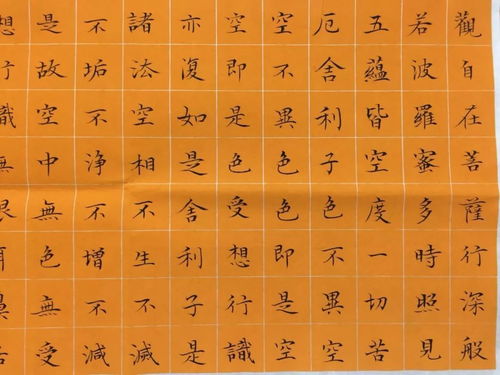 觀自在菩薩行深般
若波羅蜜多時照見
五蘊皆空度一切苦
厄舍利子色不異空
空不異色色即是空
空即是色受想行識
亦復如是舍利子是
諸法空相不生不滅
不垢不浄不增不減
是故空中無色無受
想行識無